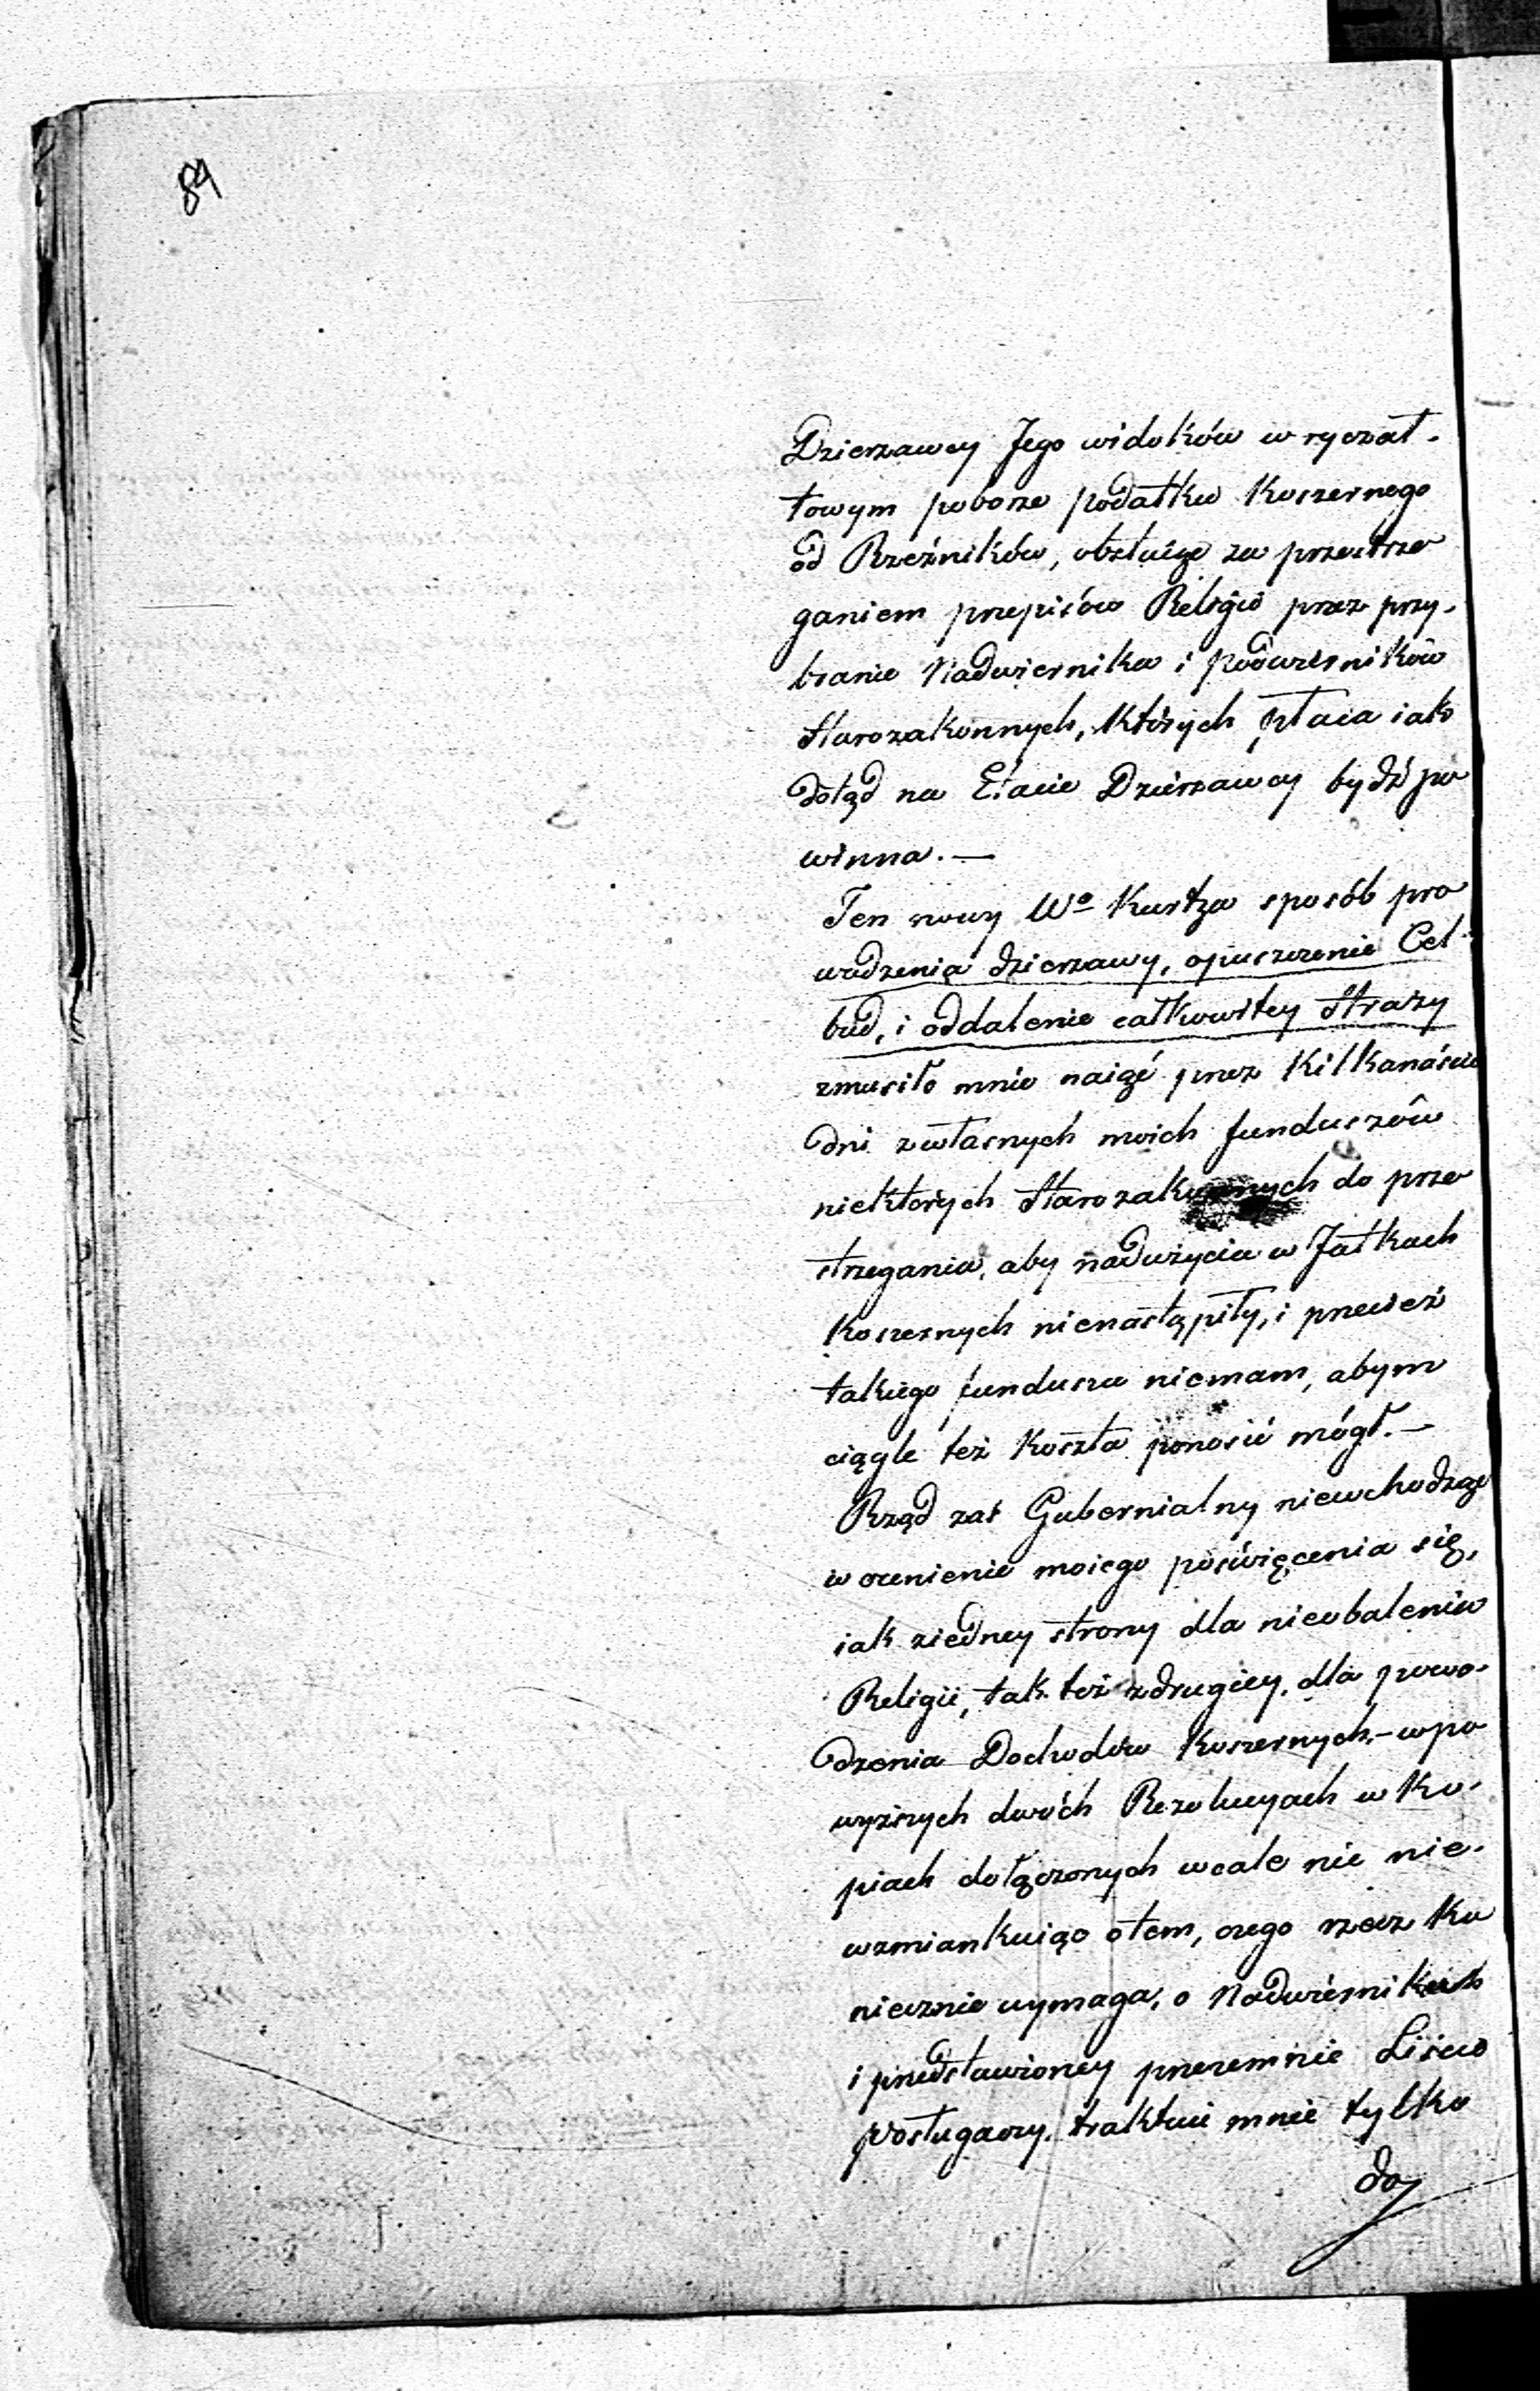 84
Dzierzawcy Jego widoków w ryczał-
towym poborze podatku Koszernego
od Rzeźników, obstaięc za przestrze
ganiem przepisów Religii przez przy-
branie Nadwiernika i podwierników
Starozakonnych, których płaca iako
dotąd na Etacie Dzierzawcy bydź po
winna. —
Ten nowy Wo Kurtza sposób pro
wadzenia dzierzawy, opuszczenie Cel-
bud, i oddalenie całkowitey Straży
zmusiło mnie naiąć przez kilkanaście
dni z własnych moich funduszów
niektórych Starozakonnych do prze
strzegania, aby nadużycia w Jatkach
Koszernych nienastąpiły, i przecież
takiego funduszu niemam, abym
ciągle też koszta ponosić mógł. —
Rząd zaś Gubernialny niewchodząc
w ocenienie moiego poświęcenia się,
iak ziedney strony dla nieobalenia
Religii, tak też z drugiey, dla powo-
dzenia Dochodów Koszernych, – w po
wyższych dwóch Rezolucyach w Ko-
piach dołączonych wcale nic nie-
wzmiankuiąc otem, czego rzecz Ko
niecznie wymaga, o Nadwiernikach
i przedstawioney przezemnie Liście
posługaczy, traktuie mnie tylko
do